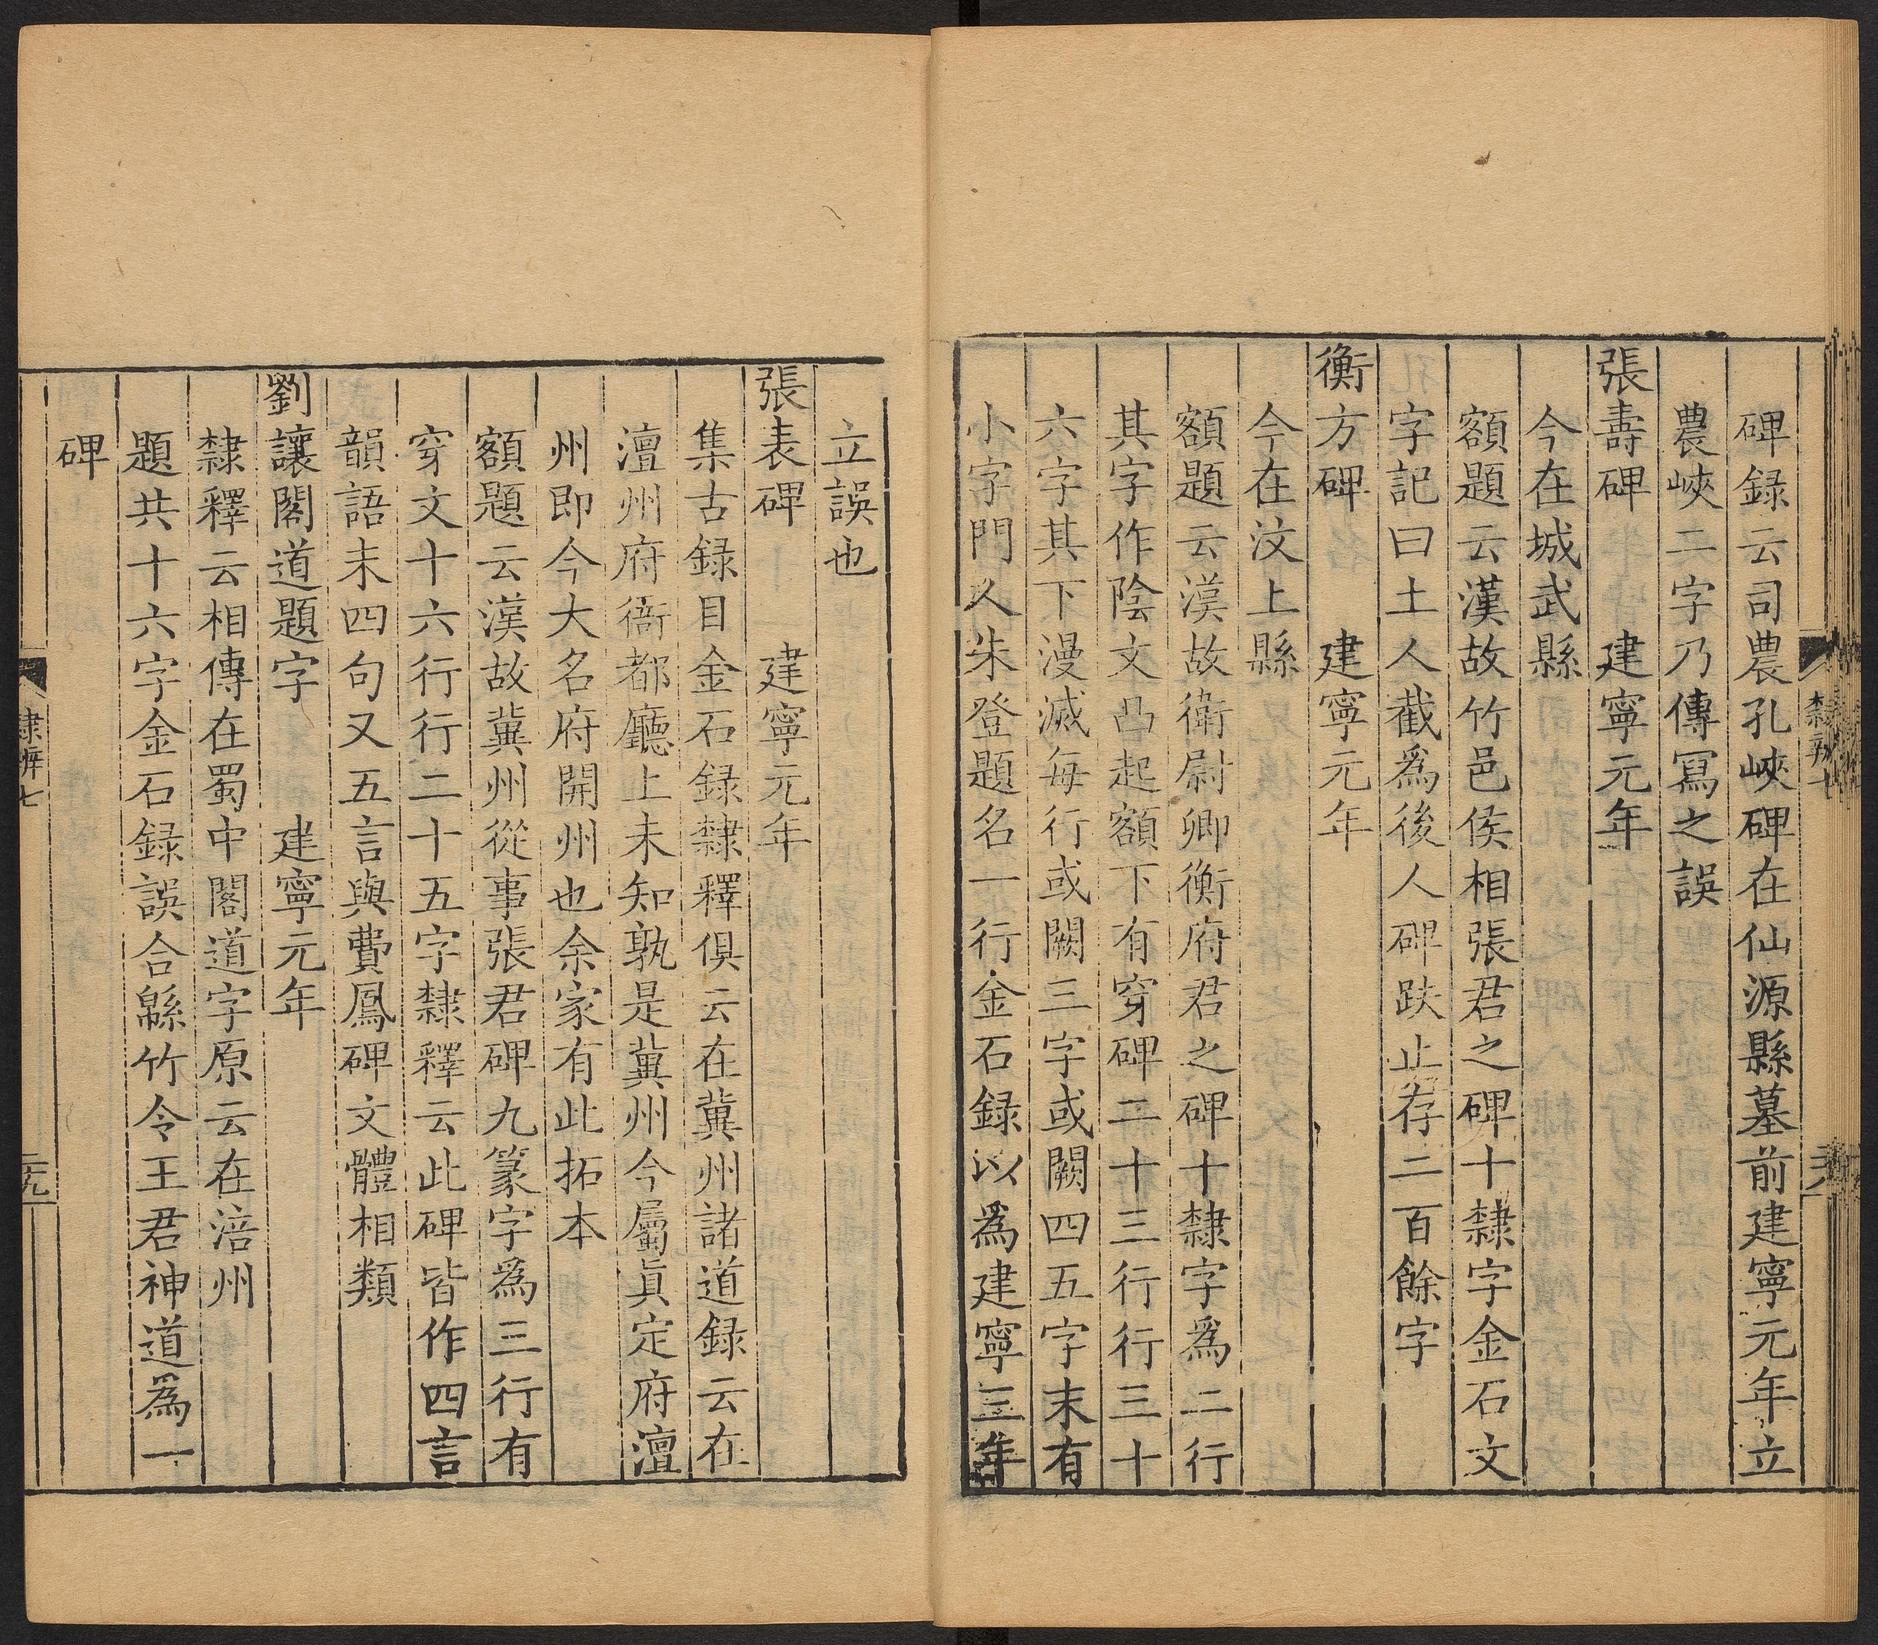 碑録云司農孔峽碑在仙源縣墓前建寧元年立
農峽二字乃傳冩之誤
張壽碑　建寧元年
今在城武縣
額題云漢故竹邑侯相張君之碑十隸字金石文
字記曰土人截爲後人碑趺止存二百餘字
衡方碑　建寧元年
今在汶上縣
額題云漢故衛尉卿衡府君之碑十隸字爲二行
其字作陰文凸起額下有穿碑二十三行行三十
六字其下漫滅每行或闕三字或闕四五字末有
小字門人朱登題名一行金石録以爲建寧三年
立誤也
張表碑　建寧元年
集古録目金石録隸釋俱云在冀州諸道録云在
澶州府衙都廳上未知孰是冀州今屬眞定府澶
州即今大名府開州也余家有此拓本
額題云漢故冀州從事張君碑九篆字爲三行有
穿文十六行行二十五字隸釋云此碑皆作四言
韻語末四句又五言與費鳳碑文體相類
劉讓閣道題字　建寧元年
隸釋云相傳在蜀中閣道字原云在涪州
題共十六字金石録誤合緜竹令王君神道爲一
碑
隸辨七
二九